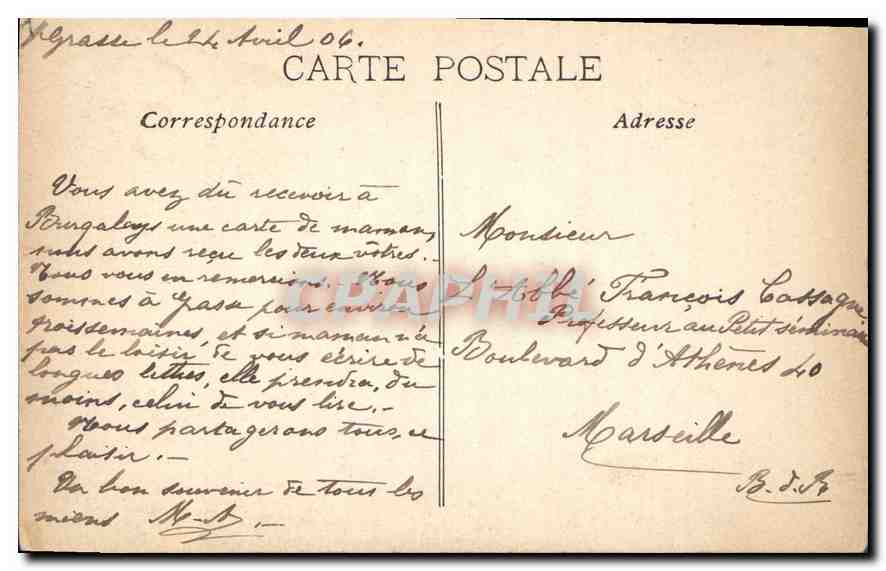 Grasse le 24 Avril 06.
CARTE POSTALE
Correspondance
Adresse
Vous avez dû recevoir à
Burgalays une carte de maman,
nous avons reçu les deux vôtres.-
Nous vous en remercions.- Nous
sommes à Grasse pour environ
trois semaines, et si maman n'a
pas le loisir de vous écrire de
longues lettres, elle prendra, du
moins, celui de vous lire.-
Nous partagerons tous, ce
plaisir.-
Un bon souvenir de tous les
miens M-A.-
Monsieur
L'Abbé François Cassagne
Professeur au Petit séminaire
Boulevard d'Athènes 40
Marseille
B.d.R
CPAPHIL